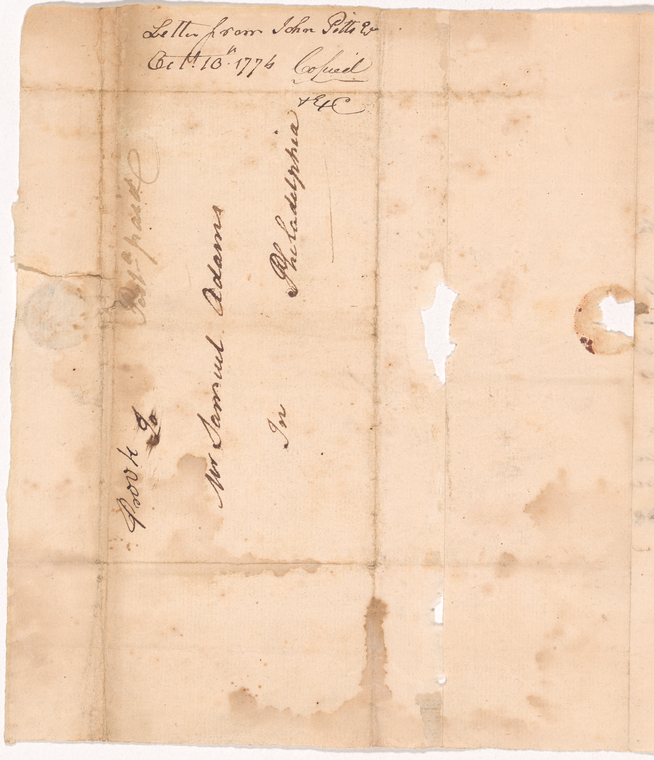 Letter from John Pitts Esqr
Octr. 13th. 1774 Copied
To
Mr Samuel Adams
In
Philadelphia